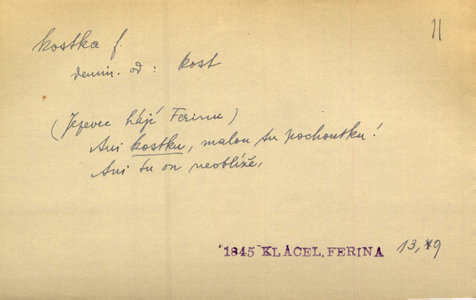 11
kostka f.
demin. od: kost
(Jezevec hájí Ferinu)
Ani kostku, malou tu pochoutku!
Ani tu on neoblíže.
1845 KLÁCEL, FERINA 13,